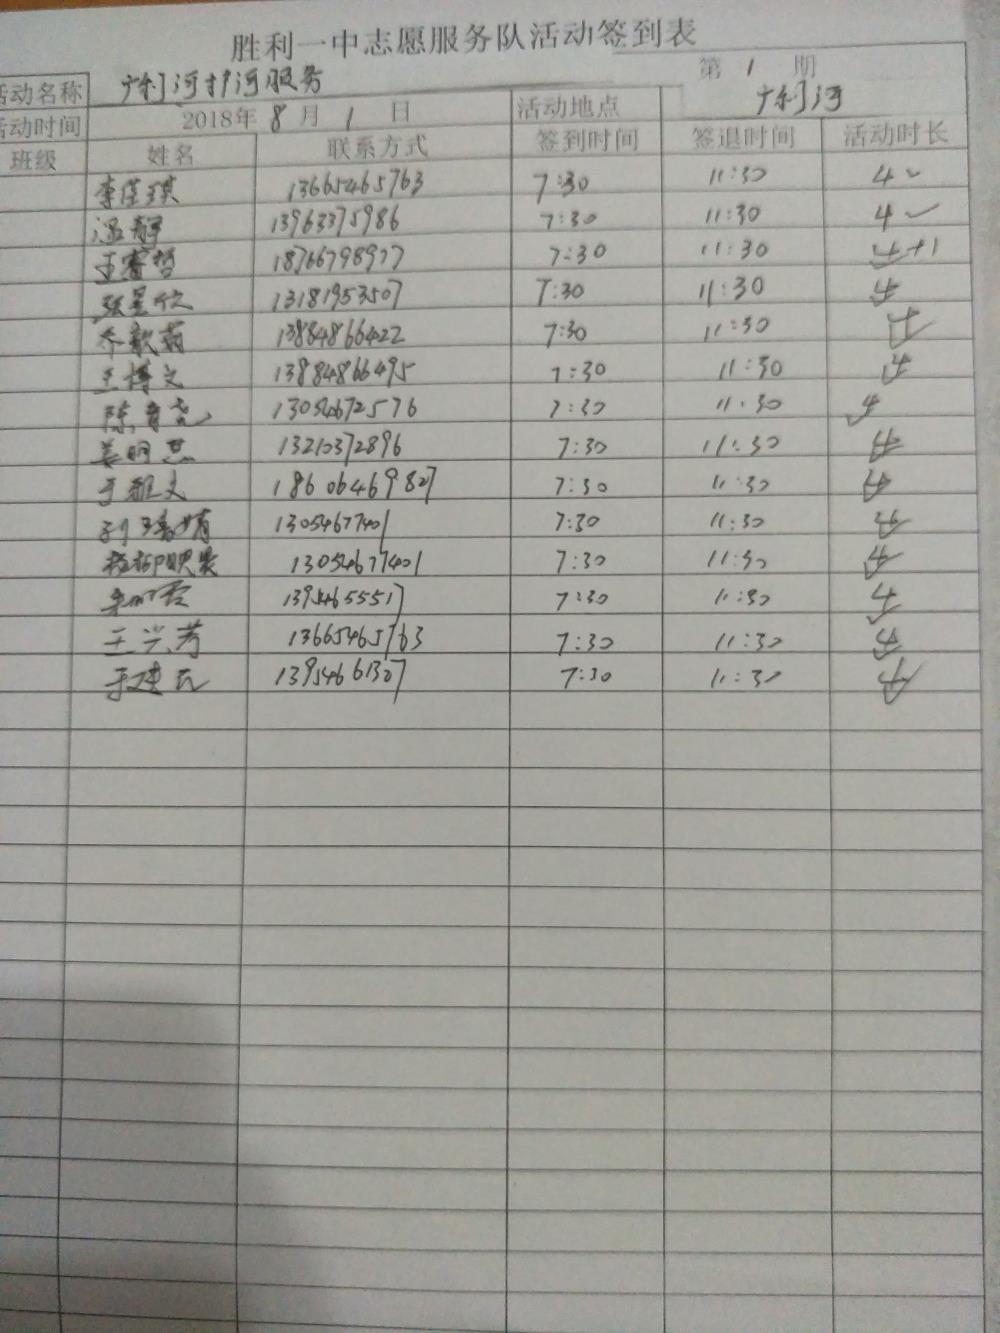 胜利一中志愿服务队活动签到表
第 1 期
活动名称 广利河护河服务
活动时间 2018年 8 月 1 日 活动地点 广利河
班级 姓名 联系方式 签到时间 签退时间 活动时长
13665465763 7:30 11:30 4
温静 13963375986 7:30 11:30 4
王睿哲 18766798977 7:30 11:30 4+1
13181953507 7:30 11:30 4
13884866422 7:30 11:30 4
王博文 13884866495 7:30 11:30 4
13054672576 7:30 11:30 4
姜明慧 13210372896 7:30 11:30 4
于雅文 18606469827 7:30 11:30 4
13054677401 7:30 11:30 4
13054677401 7:30 11:30 4
13954655517 7:30 11:30 4
王兴芳 13665465763 7:30 11:30 4
13954661307 7:30 11:30 4